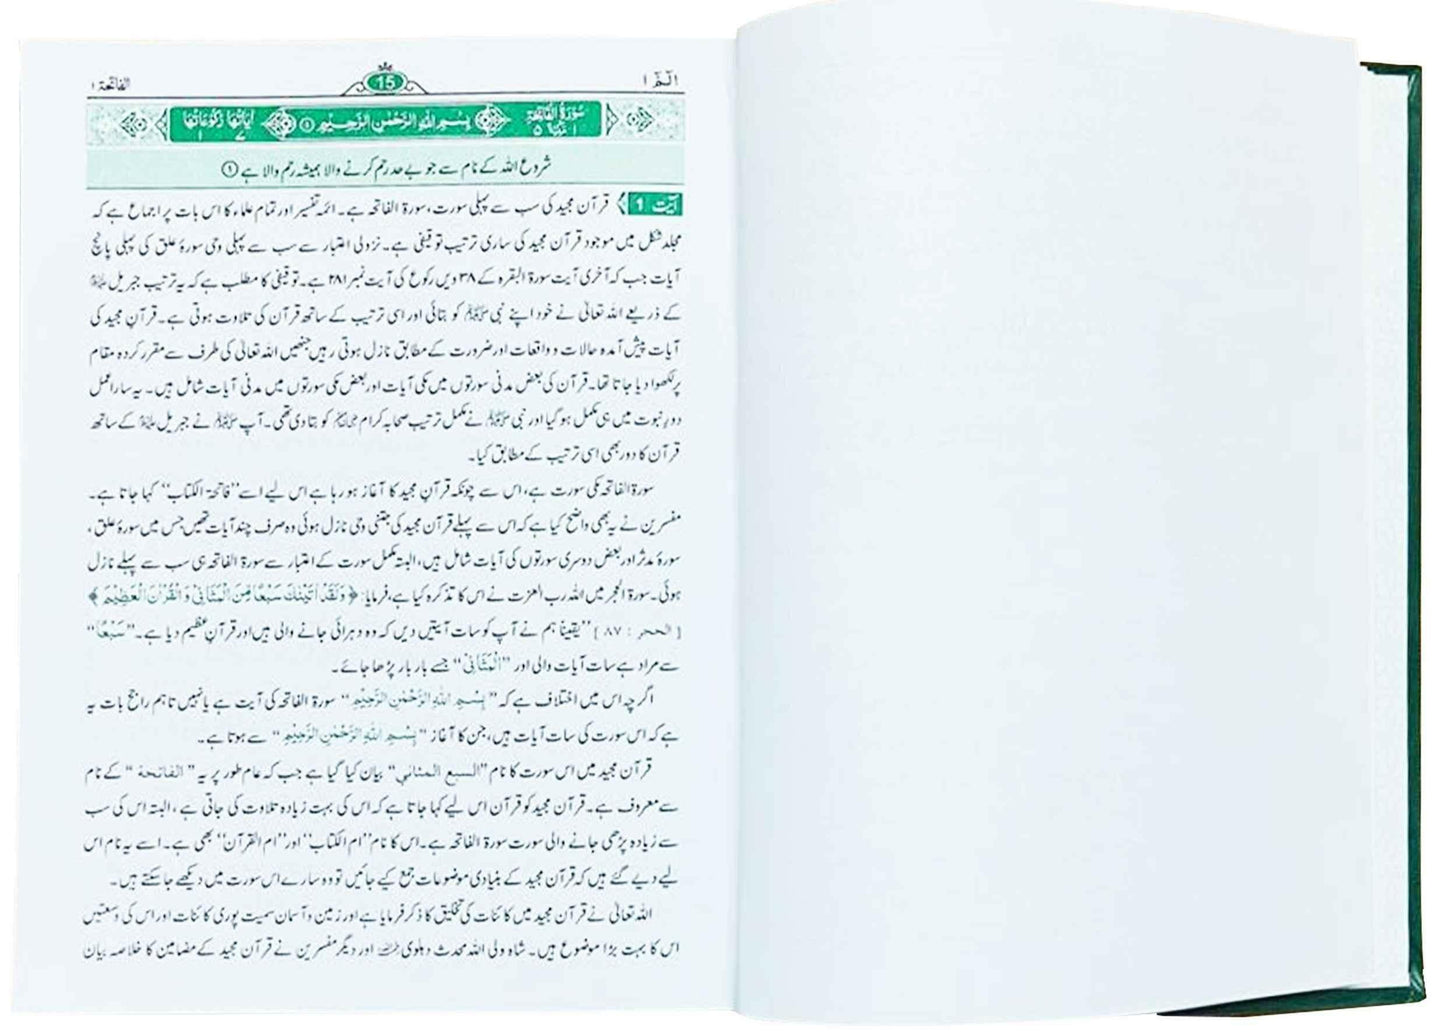 الٓمّٓ ۱
15
الفاتحۃ ۱
سُوْرَۃُ الْفَاتِحَۃِ
بِسْمِ اللّٰهِ الرَّحْمٰنِ الرَّحِيْمِ ①
اٰيَاتُهَا رُكُوْعَاتُهَا
۷ ۱
شروع اللہ کے نام سے جو بے حد رحم کرنے والا ہمیشہ رحم والا ہے ①
آیت 1 قرآن مجید کی سب سے پہلی سورت، سورۃ الفاتحہ ہے۔ ائمہ تفسیر اور تمام علماء کا اس بات پر اجماع ہے کہ
مجلد شکل میں موجود قرآن مجید کی ساری ترتیب توقیفی ہے۔ نزولی اعتبار سے سب سے پہلی وحی سورۂ علق کی پہلی پانچ
آیات جب کہ آخری آیت سورۃ البقرہ کے ۳۸ ویں رکوع کی آیت نمبر ۲۸۱ ہے۔ توقیفی کا مطلب ہے کہ یہ ترتیب جبریل علیہ السلام
کے ذریعے اللہ تعالیٰ نے خود اپنے نبی ﷺ کو بتائی اور اسی ترتیب کے ساتھ قرآن کی تلاوت ہوتی ہے۔ قرآنِ مجید کی
آیات پیش آمدہ حالات و واقعات اور ضرورت کے مطابق نازل ہوتی رہیں جنھیں اللہ تعالیٰ کی طرف سے مقرر کردہ مقام
پر لکھوا دیا جاتا تھا۔ قرآن کی بعض مدنی سورتوں میں مکی آیات اور بعض مکی سورتوں میں مدنی آیات شامل ہیں۔ یہ سارا عمل
دورِ نبوت میں ہی مکمل ہو گیا اور نبی ﷺ نے مکمل ترتیب صحابہ کرام کو بتا دی تھی۔ آپ ﷺ نے جبریل علیہ السلام کے ساتھ
قرآن کا دور بھی اسی ترتیب کے مطابق کیا۔
سورۃ الفاتحہ مکی سورت ہے، اس سے چونکہ قرآنِ مجید کا آغاز ہو رہا ہے اس لیے اسے ”فاتحۃ الکتاب“ کہا جاتا ہے۔
مفسرین نے یہ بھی واضح کیا ہے کہ اس سے پہلے قرآن مجید کی جتنی وحی نازل ہوئی وہ صرف چند آیات تھیں جس میں سورۂ علق،
سورۂ مدثر اور بعض دوسری سورتوں کی آیات شامل ہیں، البتہ مکمل سورت کے اعتبار سے سورۃ الفاتحہ ہی سب سے پہلے نازل
ہوئی۔ سورۃ الحجر میں اللہ رب العزت نے اس کا تذکرہ کیا ہے، فرمایا: ﴿ وَلَقَدْ اٰتَيْنٰكَ سَبْعًا مِّنَ الْمَثَانِيْ وَالْقُرْاٰنَ الْعَظِيْمَ ﴾
[الحجر : ۸۷] ”یقیناً ہم نے آپ کو سات آیتیں دیں کہ وہ دہرائی جانے والی ہیں اور قرآنِ عظیم دیا ہے۔ ”سَبْعًا“
سے مراد ہے سات آیات والی اور ”الْمَثَانِيْ“ جسے بار بار پڑھا جائے۔
اگرچہ اس میں اختلاف ہے کہ ”بِسْمِ اللّٰهِ الرَّحْمٰنِ الرَّحِيْمِ“ سورۃ الفاتحہ کی آیت ہے یا نہیں تاہم راجح بات یہ
ہے کہ اس سورت کی سات آیات ہیں، جن کا آغاز ”بِسْمِ اللّٰهِ الرَّحْمٰنِ الرَّحِيْمِ“ سے ہوتا ہے۔
قرآن مجید میں اس سورت کا نام ”السبع المثاني“ بیان کیا گیا ہے جب کہ عام طور پر یہ ”الفاتحة“ کے نام
سے معروف ہے۔ قرآن مجید کو قرآن اس لیے کہا جاتا ہے کہ اس کی بہت زیادہ تلاوت کی جاتی ہے، البتہ اس کی سب
سے زیادہ پڑھی جانے والی سورت سورۃ الفاتحہ ہے۔ اس کا نام ”ام الکتاب“ اور ”ام القرآن“ بھی ہے۔ اسے یہ نام اس
لیے دیے گئے ہیں کہ قرآن مجید کے بنیادی موضوعات جمع کیے جائیں تو وہ سارے اس سورت میں دیکھے جاسکتے ہیں۔
اللہ تعالیٰ نے قرآن مجید میں کائنات کی تخلیق کا ذکر فرمایا ہے اور زمین و آسمان سمیت پوری کائنات اور اس کی وسعتیں
اس کا بہت بڑا موضوع ہیں۔ شاہ ولی اللہ محدث دہلوی اور دیگر مفسرین نے قرآن مجید کے مضامین کا خلاصہ بیان